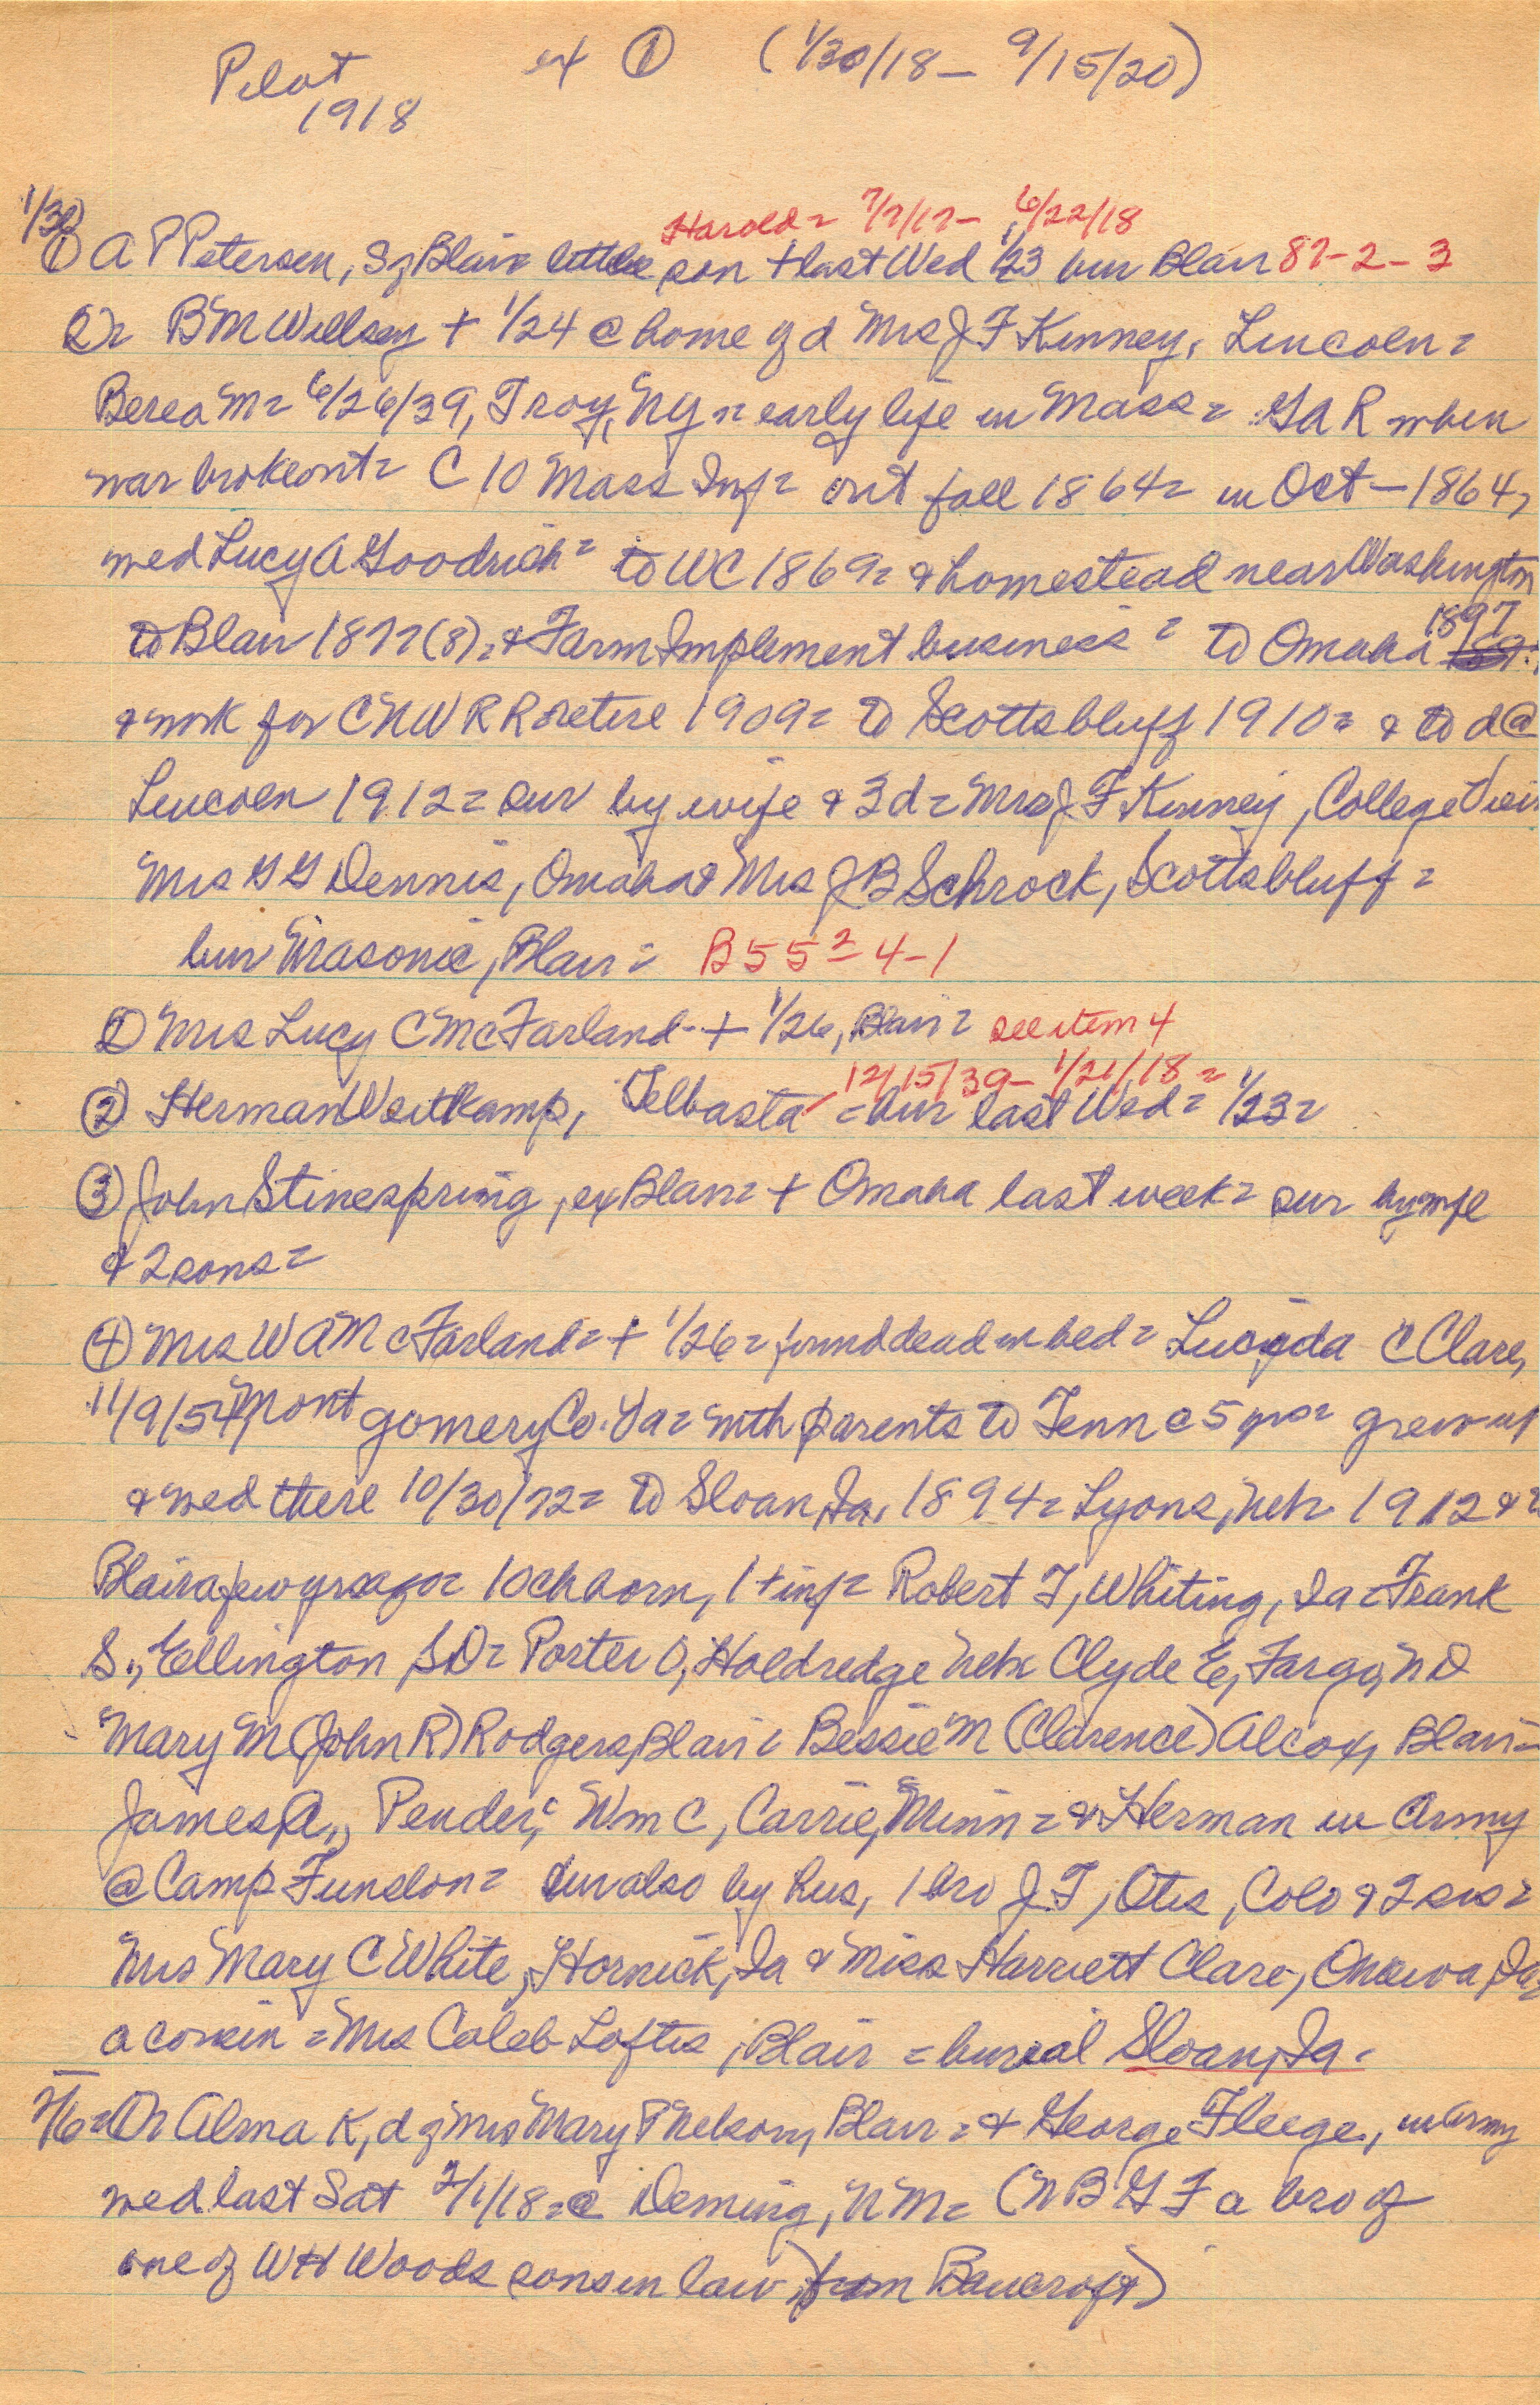 Pilot ex ① (1/30/18 – 9/15/20)
1918
Harold = 7/7/17 – 6/22/18
1/30
① A P Petersen, S of Blair little son + last Wed 1/23 bur Blair 87-2-3
B M Willsey + 1/24 @ home of d Mrs J F Kinney, Lincoln =
Berea M = 6/26/39, Troy, NY = early life in Mass = GAR when
war broke out = C 10 Mass Inf = out fall 1864 = in Oct – 1864,
wed Lucy A Goodrich = to WC 1869 = & homestead near Washington
to Blair 1877(8) = & Farm Implement business = to Omaha 1897
& work for CNW RR retire 1909 = to Scottsbluff 1910 = & to d @
Lincoln 1912 = sur by wife & 3 d = Mrs J F Kinney, College View
Mrs G G Dennis, Omaha & Mrs J B Schrock, Scottsbluff =
bur Masonic, Blair = B55 = 4-1
② Mrs Lucy C McFarland - + 1/26, Blair = see item 4
12/15/39 – 1/21/18 =
② Herman Weitkamp, Telbasta = bur last Wed = 1/23 =
③ John Stinespring, ex Blair = + Omaha last week = sur by wife
& 2 sons =
④ Mrs W A McFarland = + 1/26 = found dead in bed = Lucinda C Clare,
11/9/54, Montgomery Co. Va = with parents to Tenn @ 5 yrs = grew up
& wed there 10/30/72 = to Sloan, Ia, 1894 = Lyons, Neb 1912 &
Blair a few yrs ago = 10 ch born, 1 + inf = Robert T, Whiting, Ia = Frank
S., Ellington, SD = Porter O, Holdredge Neb = Clyde E, Fargo, ND
Mary M (John R) Rodgers, Blair = Bessie M (Clarence) Alcox, Blair =
James A., Pender, Wm C, Carrie, Minn = & Herman in Army
@ Camp Funston = sur also by hus, 1 bro J. T, Otis, Colo & 2 sis =
Mrs Mary C White, Hornick, Ia & Miss Harriett Clare, Onawa, Ia,
a cousin = Mrs Caleb Loftis, Blair = burial Sloan, Ia =
2/6 = Alma K, d of Mrs Mary P Nelson, Blair = & George Fleege, in army
wed last Sat 2/1/18 = @ Deming, NM = (NB G F a bro of
one of W H Woods sons in law, from Bancroft)